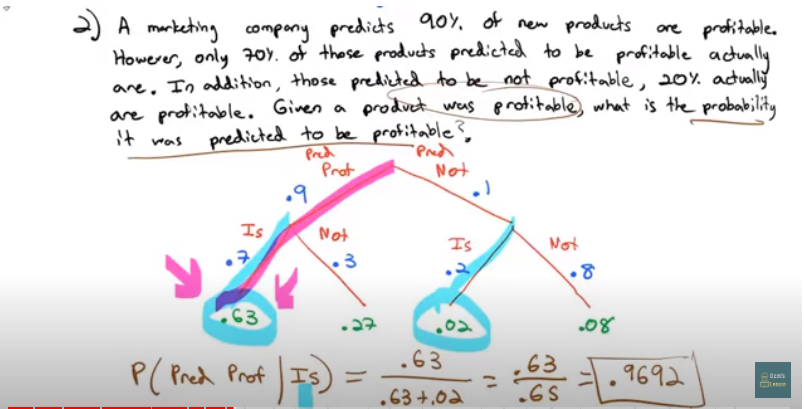 2) A marketing company predicts 90% of new products are profitable.
However, only 70% of those products predicted to be profitable actually
are. In addition, those predicted to be not profitable, 20% actually
are profitable. Given a product was profitable, what is the probability
it was predicted to be profitable?
Pred Prof
Pred Not
.9
.1
Is
Not
Is
Not
.7
.3
.2
.8
.63
.27
.02
.08
P(Pred Prof | Is) = .63 / .63+.02 = .63 / .65 = .9692